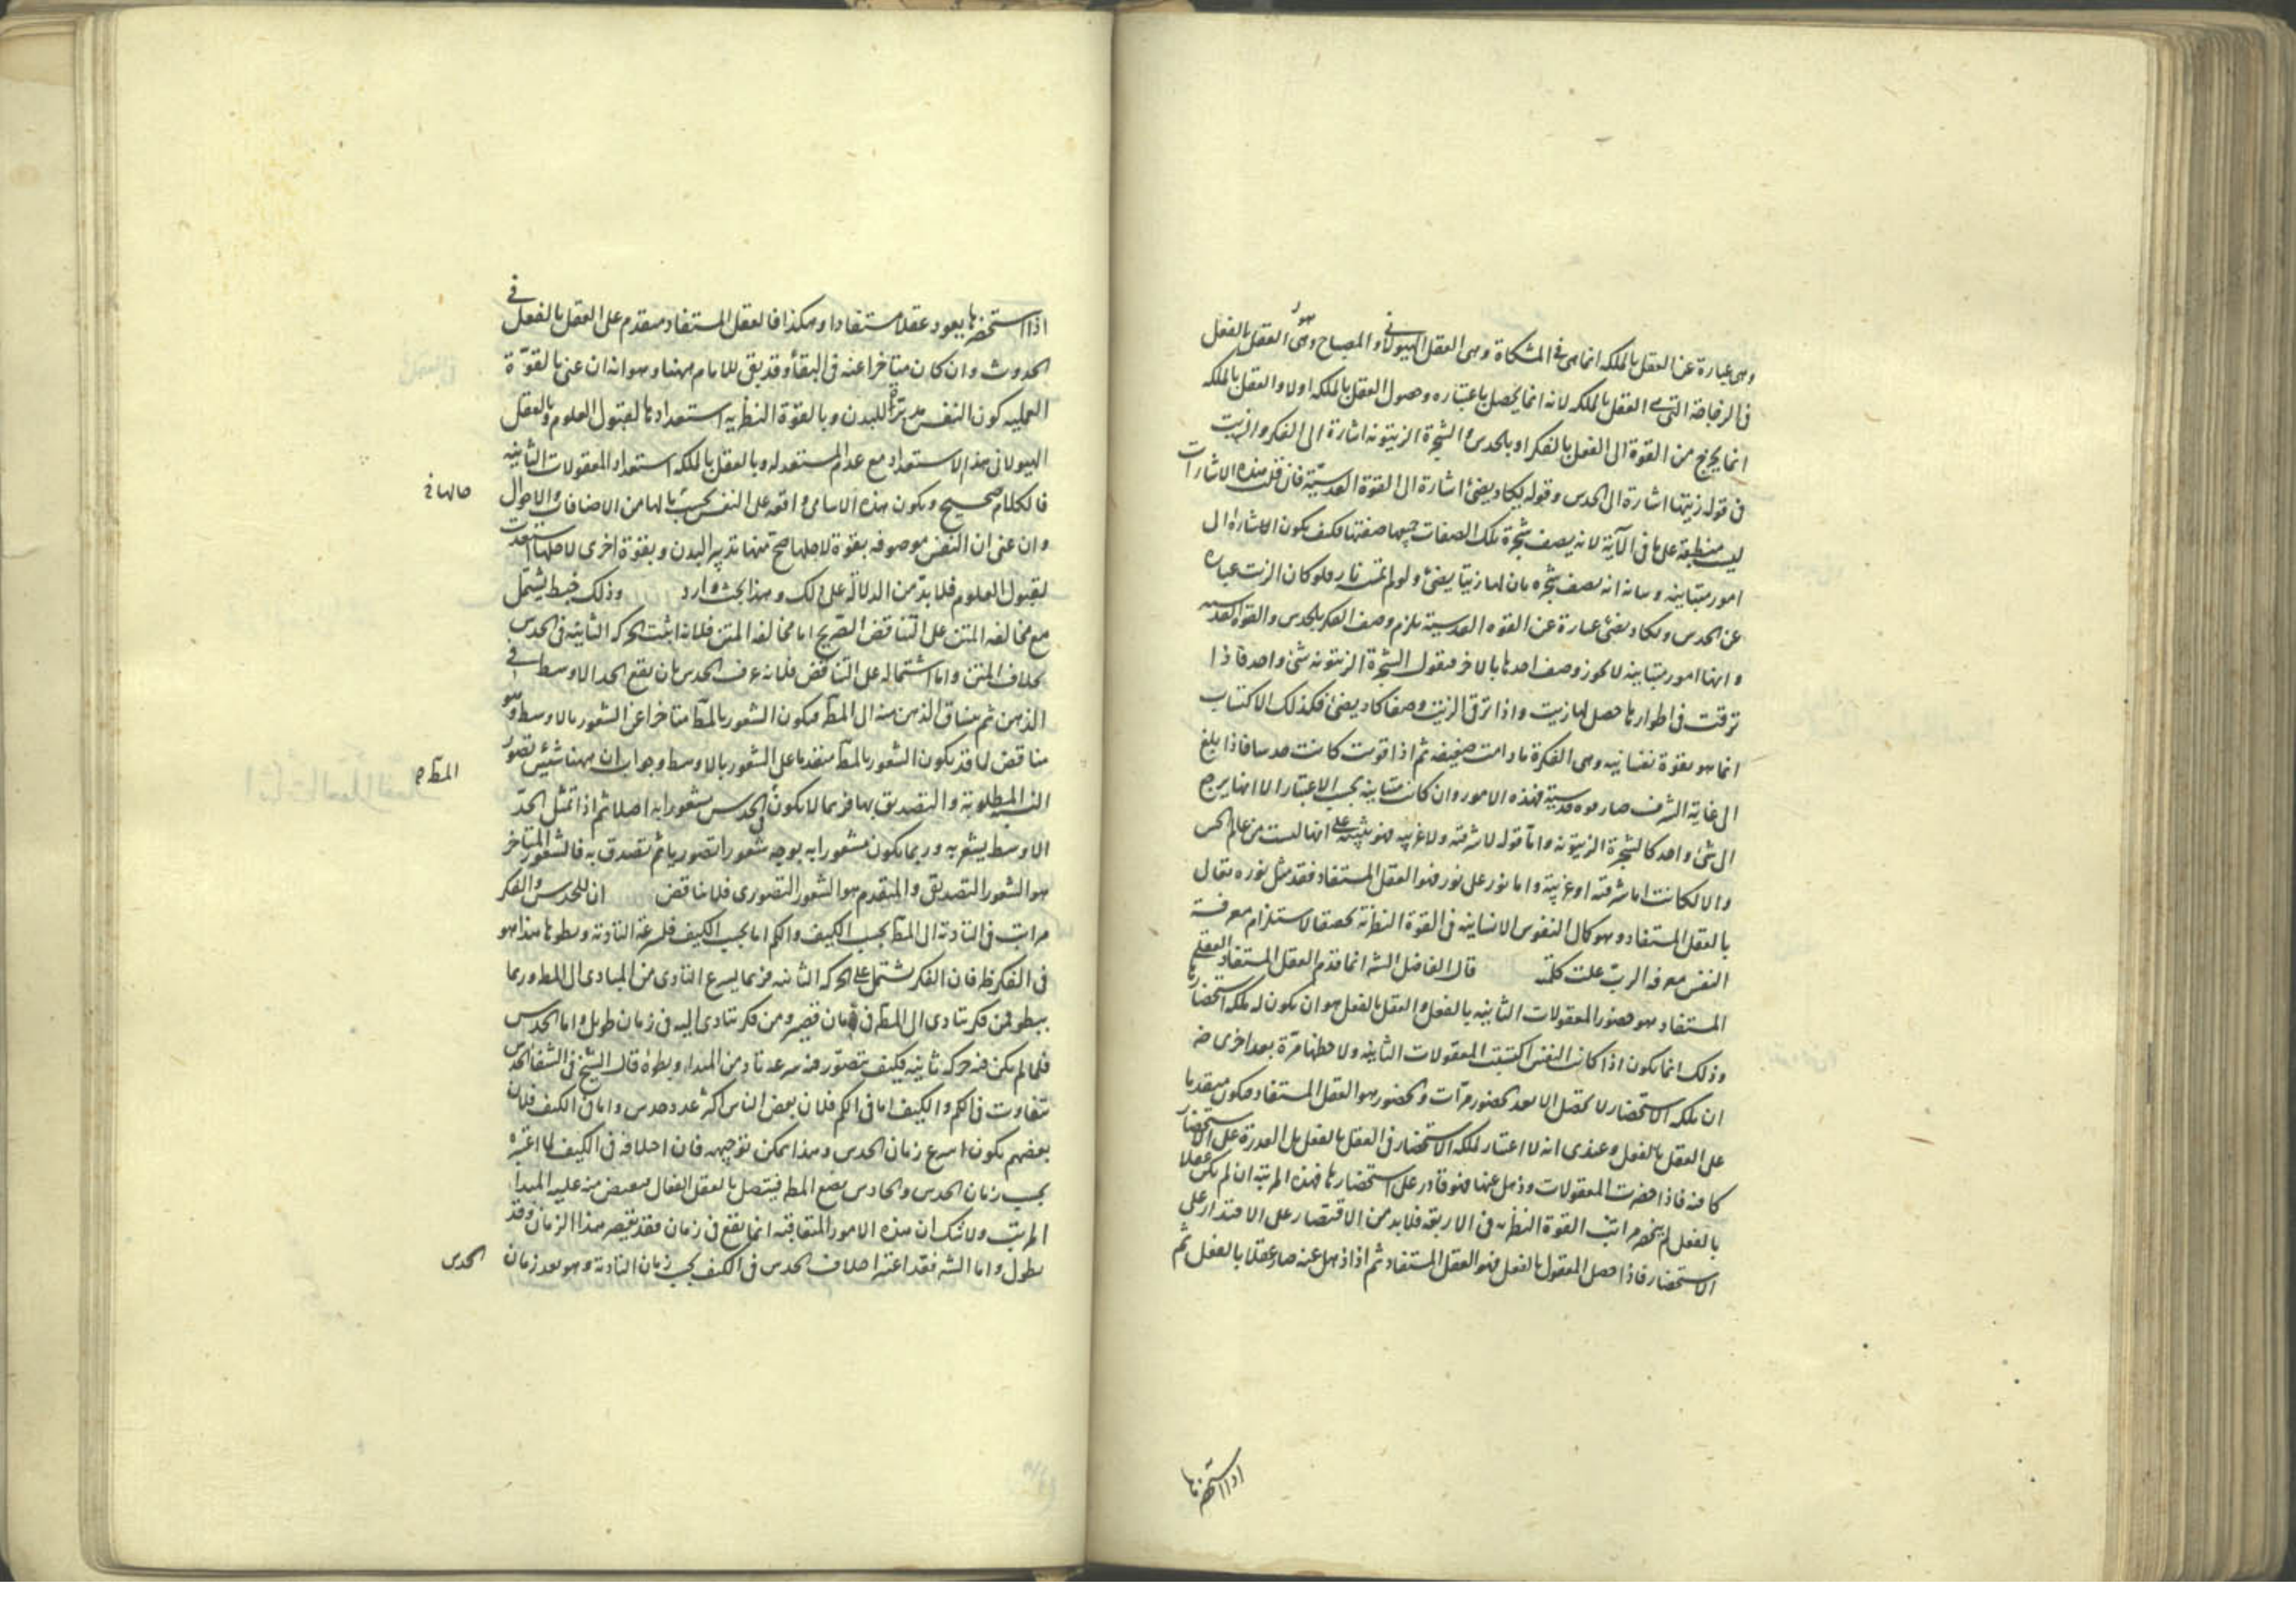 وهى عبارة عن العقل بالملكه انما هى فى المشكاة وهى العقل الهيولانى و المصباح وهو العقل بالفعل
فى الزجاجة التى هى العقل بالملكه لانه انما يحصل باعتباره وحصول العقل بالملكه اولا والعقل بالملكه
انما يخرج من القوة الى الفعل بالفكر او بالحدس و الشجرة الزيتونه اشارة الى الفكر والزيت
فى قوله زيتها اشارة الى الحدس وقوله يكاد يضئ اشارة الى القوة القدسيّة فان قلت هذه الاشارات
ليست منطبقة على ما فى الآية لانه يصف شجرة بتلك الصفات جميعها صفتها فكيف يكون الاشارة الى
امور متباينه و بيانه انه يصف شجره بان لها زيتا يضئ ولو لم تمسسه نار فلو كان الزيت عباره
عن الحدس و يكاد يضئ عبارة عن القوه القدسية يلزم وصف الفكر بالحدس والقوة القدسيه
و انها امور متباينه لا يجوز وصف احدها بالاخر فيقول الشجرة الزيتونه شئ واحد فاذا
ترقت فى اطوارها حصل لها زيت واذا ترقى الزيت وصفا كاد يضئ فكذلك الاكتساب
انما هو بقوة نفسانيه وهى الفكرة ما دامت ضعيفه ثم اذا قويت كانت حدسا فاذا بلغ
الى غاية الشرف صار قوه قدسية فهذه الامور وان كانت متباينه بحسب الاعتبار الا انها يرجع
الى شئ واحد كالشجرة الزيتونه واما قوله لا شرقيه ولا غربيه فهو تنبيه على انها ليست من عالم الحس
والا لكانت اما شرقيه او غربية و اما نور على نور فهو العقل المستفاد فقد مثل نوره تعالى
بالعقل المستفاد وهو كمال النفوس الانسانيه فى القوة النظريه تحقيقا لاستلزام معرفة
النفس معرفة الربّ علت كلمته قال الفاضل الشه انما قدم العقل المستفاد العقل
المستفاد هو حضور المعقولات الثانيه بالفعل و العقل بالفعل هو ان يكون له ملكه استحضارها
وذلك انما يكون اذا كانت النفس اكتسبت المعقولات الثانيه ولاحظها مرّة بعد اخرى
ان ملكه الاستحضار لا تحصل الا بعد حضور مرّات و الحضور هو العقل المستفاد فيكون متقدما
على العقل بالفعل و عندى انه لا اعتبار لملكه الاستحضار فى العقل بالفعل بل القدرة على الاستحضار
كافيه فاذا حضرت المعقولات وذهل عنها فهو قادر على استحضارها فهذه المرتبه ان لم يكن عقلا
بالفعل لم ينحصر مراتب القوة النظريه فى الاربعة فلا بد من الاقتصار على الاقتدار على
الاستحضار فاذا حصل المعقول بالفعل فهو العقل المستفاد ثم اذا ذهل عنه صار عقلا بالفعل ثم
اذا استحضرها
اذا استحضرها يعود عقلا مستفادا وهكذا فالعقل المستفاد متقدم على العقل بالفعل فى
الحدوث وان كان متاخرا عنه فى البقاء وقد بقى للامام ههنا وهو انه ان عنى بالقوّة
العمليه كون النفس مدبّرة للبدن و بالقوة النظريه استعدادها لقبول العلوم و بالعقل
الهيولانى هذا الاستعداد مع عدم المستعد له و بالعقل بالملكه استعداد المعقولات الثانيه
فالكلام صحيح ويكون هذه الاسامى واقعه على النفس بحسب ما لها من الاضافات والاحوال
وان عنى ان النفس موصوفه بقوة لاجلها صحّ منها تدبير البدن و بقوة اخرى لاجلها استعدت
لقبول العلوم فلا بد من الدلالة على ذلك وهذا البحث وارد وذلك خبط يشتمل
مع مخالفه المتن على التناقض الصريح اما مخالفه المتن فلانه اثبت الحركه الثانيه فى الحدس
بخلاف المتن واما اشتماله على التناقض فلانه عرف الحدس بان يقع الحد الاوسط فى
الذهن ثم ينساق الذهن منه الى المط فيكون الشعور بالمط متاخرا عن الشعور بالاوسط وهو
مناقض لما قد يكون الشعور بالمط متقدما على الشعور بالاوسط وجوابه ان ههنا شيئين تصوّر المط
النسبه المطلوبة و التصديق بها فربما لا يكون فى الحدس مشعورا به اصلا ثم اذا تمثل الحدّ
الاوسط يشعر به وربما يكون مشعورا به بوجه شعورا تصوريا ثم تصدق به فالشعور المتاخر
هو الشعور التصديقى و المتقدم هو الشعور التصورى فلا تناقض ان للحدس والفكر
مراتب فى التاديه الى المط بحسب الكيف والكم اما بحسب الكيف فلسرعة التاديه و بطوها هذا هو
فى الفكر ظ فان الفكر يشتمل على الحركه الثانيه فربما يسرع التادى من المبادى الى المط وربما
يبطو فمن فكر يتادى الى المط فى زمان قصير و من فكر يتادى اليه فى زمان طويل واما الحدس
فلما لم يكن فيه حركه ثانيه فكيف يتصوّر فيه سرعه تاد من المبدا و بطوه قال الشيخ فى الشفا الحدس
متفاوت فى الكم و الكيف اما فى الكم فلان بعض الناس اكثر عدد حدس واما فى الكيف فلان
بعضهم يكون اسرع زمان الحدس وهذا يمكن توجيهه فان اختلافه فى الكيف لما اعتبره
بحسب زمان الحدس و الحادس يضع المط فيتصل بالعقل الفعال فيفيض منه عليه المبدا
المرتب ولا شك ان هذه الامور المتعاقبه انما يقع فى زمان فقد يقصر هذا الزمان وقد
يطول واما الشه فقد اعتبر اختلاف الحدس فى الكيف بحسب زمان التاديه وهو بعد زمان الحدس